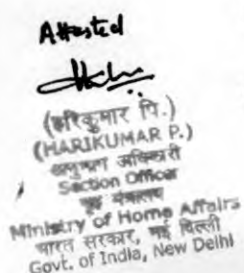 Attested
(हरिकुमार पि.)
(HARIKUMAR P.)
अनुभाग अधिकारी
Section Officer
गृह मंत्रालय
Ministry of Home Affairs
भारत सरकार, नई दिल्ली
Govt. of India, New Delhi